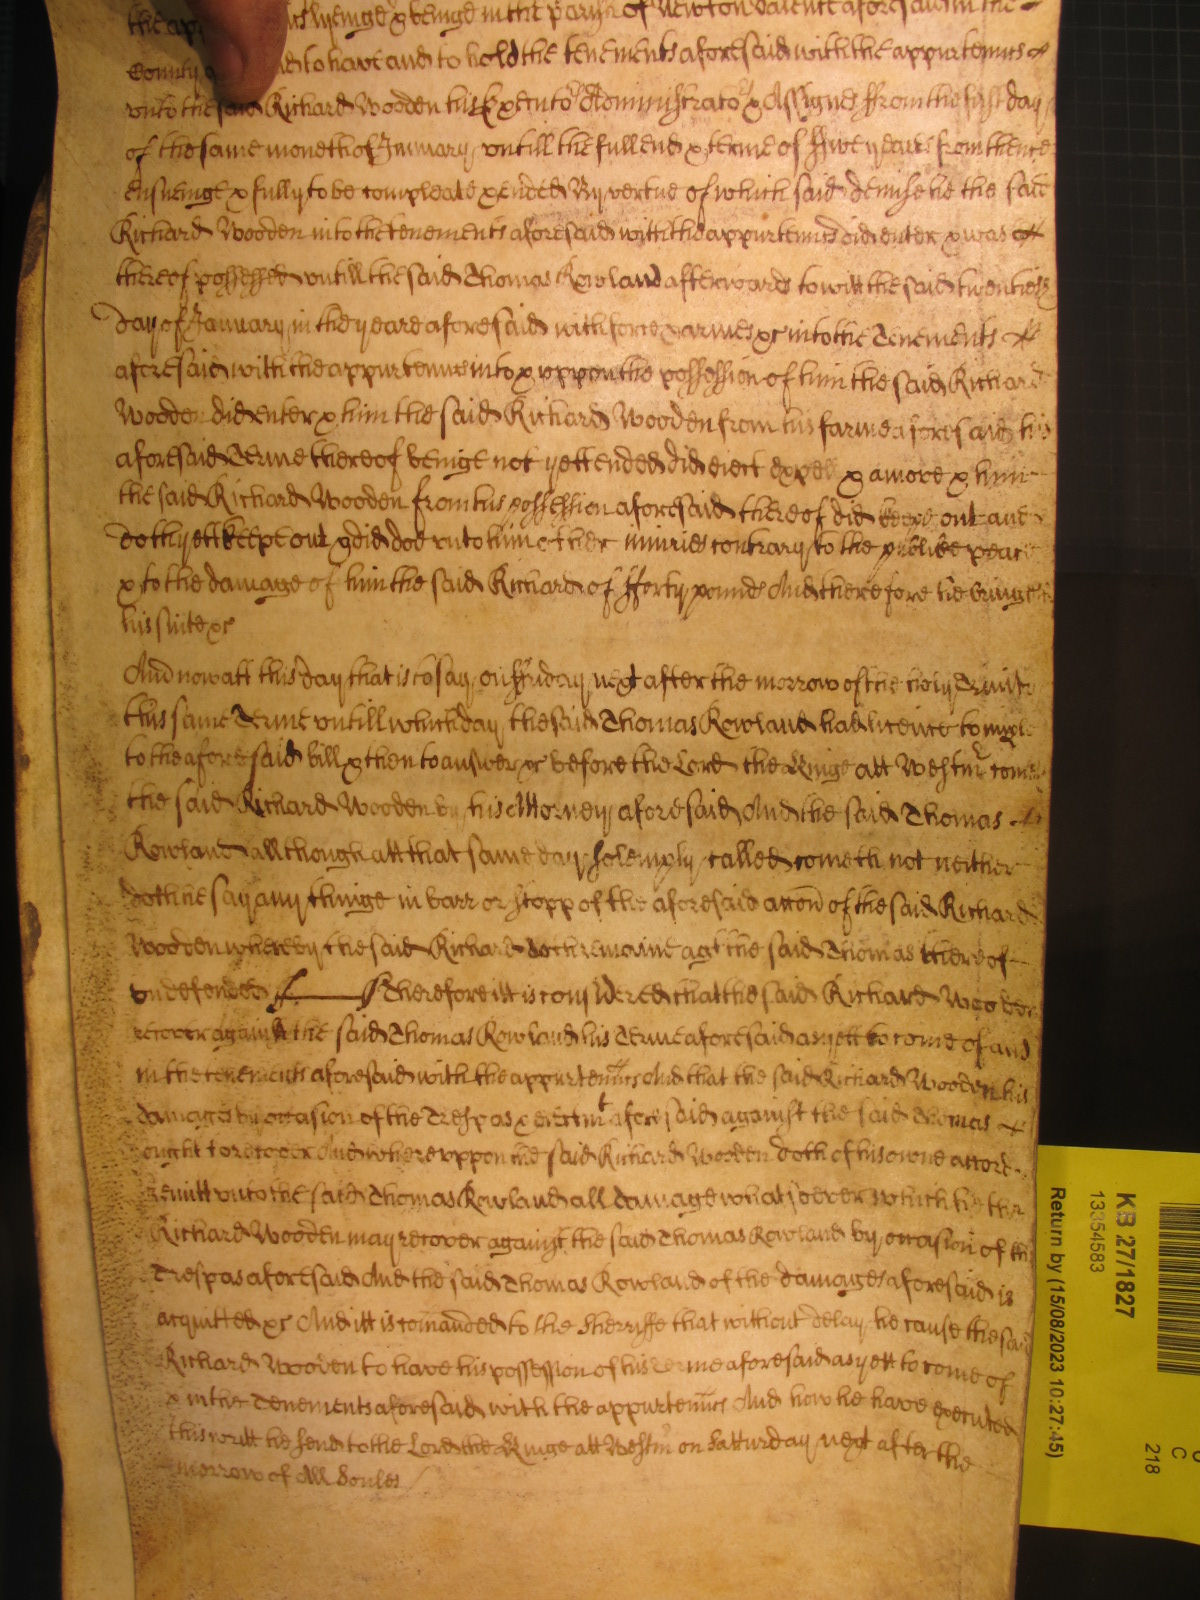 the app lyeinge & beinge in the parish of Newton Valence aforesaid in the
County to have and to hold the tenements aforesaid with the appurtenn̄ces
unto the said Richard Wooden his Executors Administrators & Assignes ffrom the first day
of the same moneth of January untill the full end & terme of ffive yeares from thence
ensueinge & fully to be compleate & ended By vertue of which said demise he the said
Richard Wooden into the tenements aforesaid with the appurtennc̄es did enter & was
thereof possessed untill the said Thomas Rowland afterwards to witt the said twentieth
day of January in the yeare aforesaid with force & armes &c into the Tenements
aforesaid with the appurtenn̄ces into & uppon the possession of him the said Richard
Wooden did enter & him the said Richard Wooden from his farme aforesaid his
aforesaid Terme thereof beinge not yett ended did eiect expell & amove & him
the said Richard Wooden from his possession aforesaid thereof did keepe out and
doth yett keepe out & did doe unto him other iniuries contrary to the publike peace
& to the damage of him the said Richard of fforty pounds And therefore he bringeth
his suite &c
And now att this day that is to say on ffriday next after the morrow of the holy Trinity
this same Terme untill which day the said Thomas Rowland had licence to imple
to the aforesaid bill & then to answer &c before the Lord the Kinge att Westm̄r cometh
the said Richard Wooden by his Attorney aforesaid And the said Thomas
Rowland allthough att that same day solemply called cometh not neither
doth he say any thinge in barr or stopp of the aforesaid acc̄on of the said Richard
Wooden whereby the said Richard doth remaine agt the said Thomas thereof
undefended Therefore itt is considered that the said Richard Wooden
recover against the said Thomas Rowland his Terme aforesaid as yett to come of and
in the tenements aforesaid with the appurtenn̄ces And that the said Richard Wooden his
damages by occasion of the Trespas & eiectmt aforesaid against the said Thomas
ought to recover And whereuppon the said Richard Wooden doth of his owne accord
remitt unto the said Thomas Rowland all damage whatsoever which he the
Richard Wooden may recover against the said Thomas Rowland by occasion of the
Trespas aforesaid And the said Thomas Rowland of the damages aforesaid is
acquitted &c And itt is comānded to the Sherriffe that without delay he cause the said
Richard Wooden to have his possession of his terme aforesaid as yett to come of
& in the Tenements aforesaid with the appurtenn̄ces And how he have executed
this writt he send to the Lord the Kinge att Westm̄r on Satturday next after the
morrow of All Soules
KB 27/1827
13354583
Return by (15/08/2023 10:27:45)
C
218